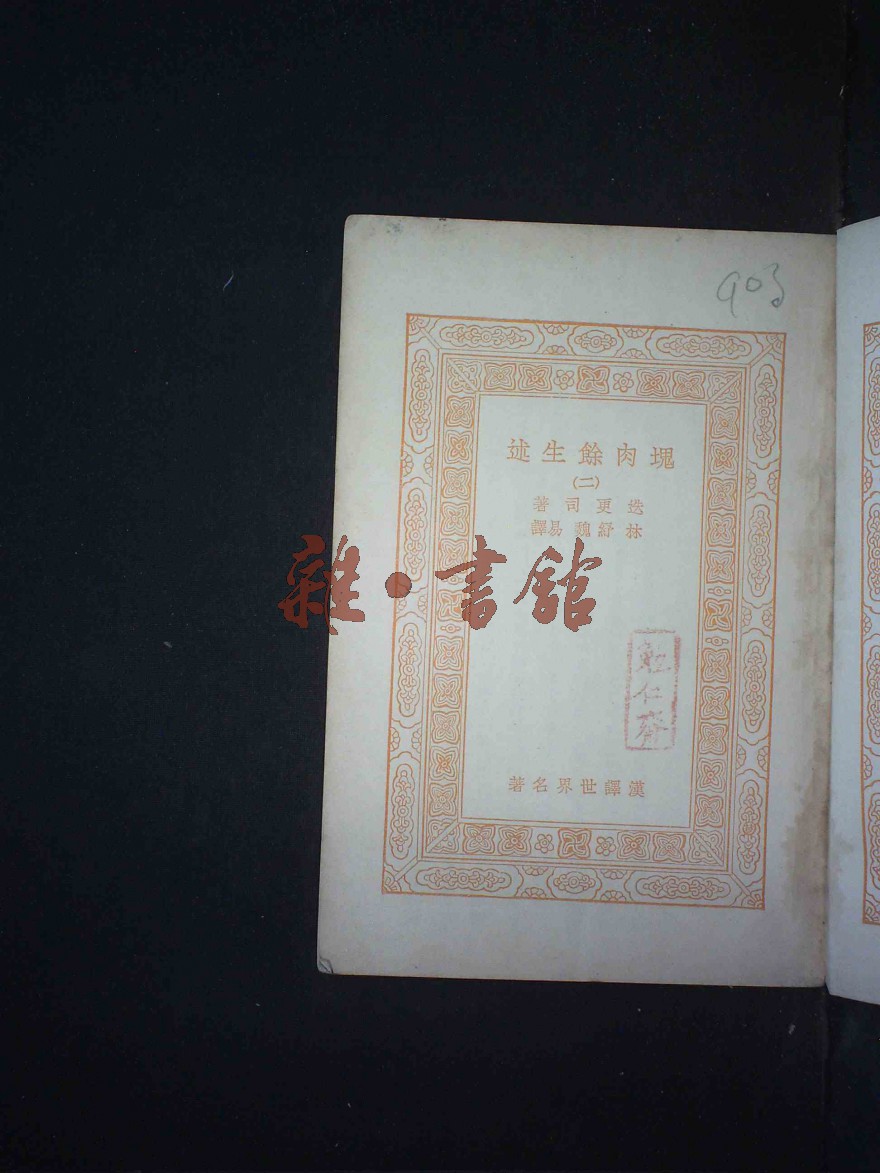 903
塊肉餘生述
(二)
迭更司著
林紓魏易譯
雜·書館
勉仁齋
漢譯世界名著